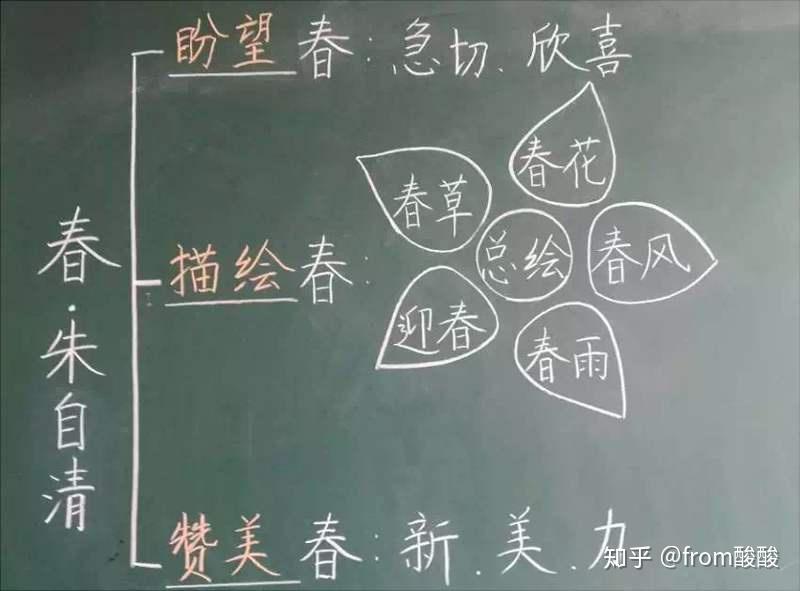 春·朱自清
盼望春：急切、欣喜
描绘春：
春草
春花
总绘
春风
迎春
春雨
赞美春：新.美.力
知乎 @from酸酸